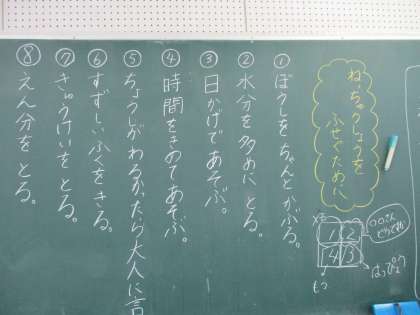 ねっちゅうしょうを
ふせぐために
①ぼうしをちゃんとかぶる。
②水分を多めにとる。
③日かげであそぶ。
④時間をきめてあそぶ。
⑤ちょうしがわるかったら大人に言
⑥すずしいふくをきる。
⑦きゅうけいをとる。
⑧えん分をとる。
1 2
4 3
はっぴょう
もつ